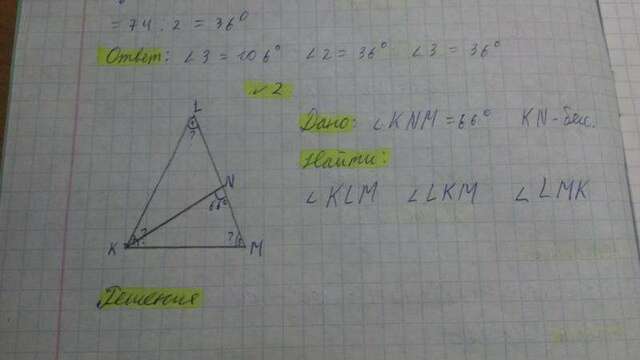 = 74 : 2 = 36°
Ответ: ∠3 = 106° ∠2 = 36° ∠3 = 36°
√2
Дано: ∠KNM = 66° KN - бис.
Найти:
∠KLM ∠LKM ∠LMK
L
?
N
66°
K
?
?
M
Решения